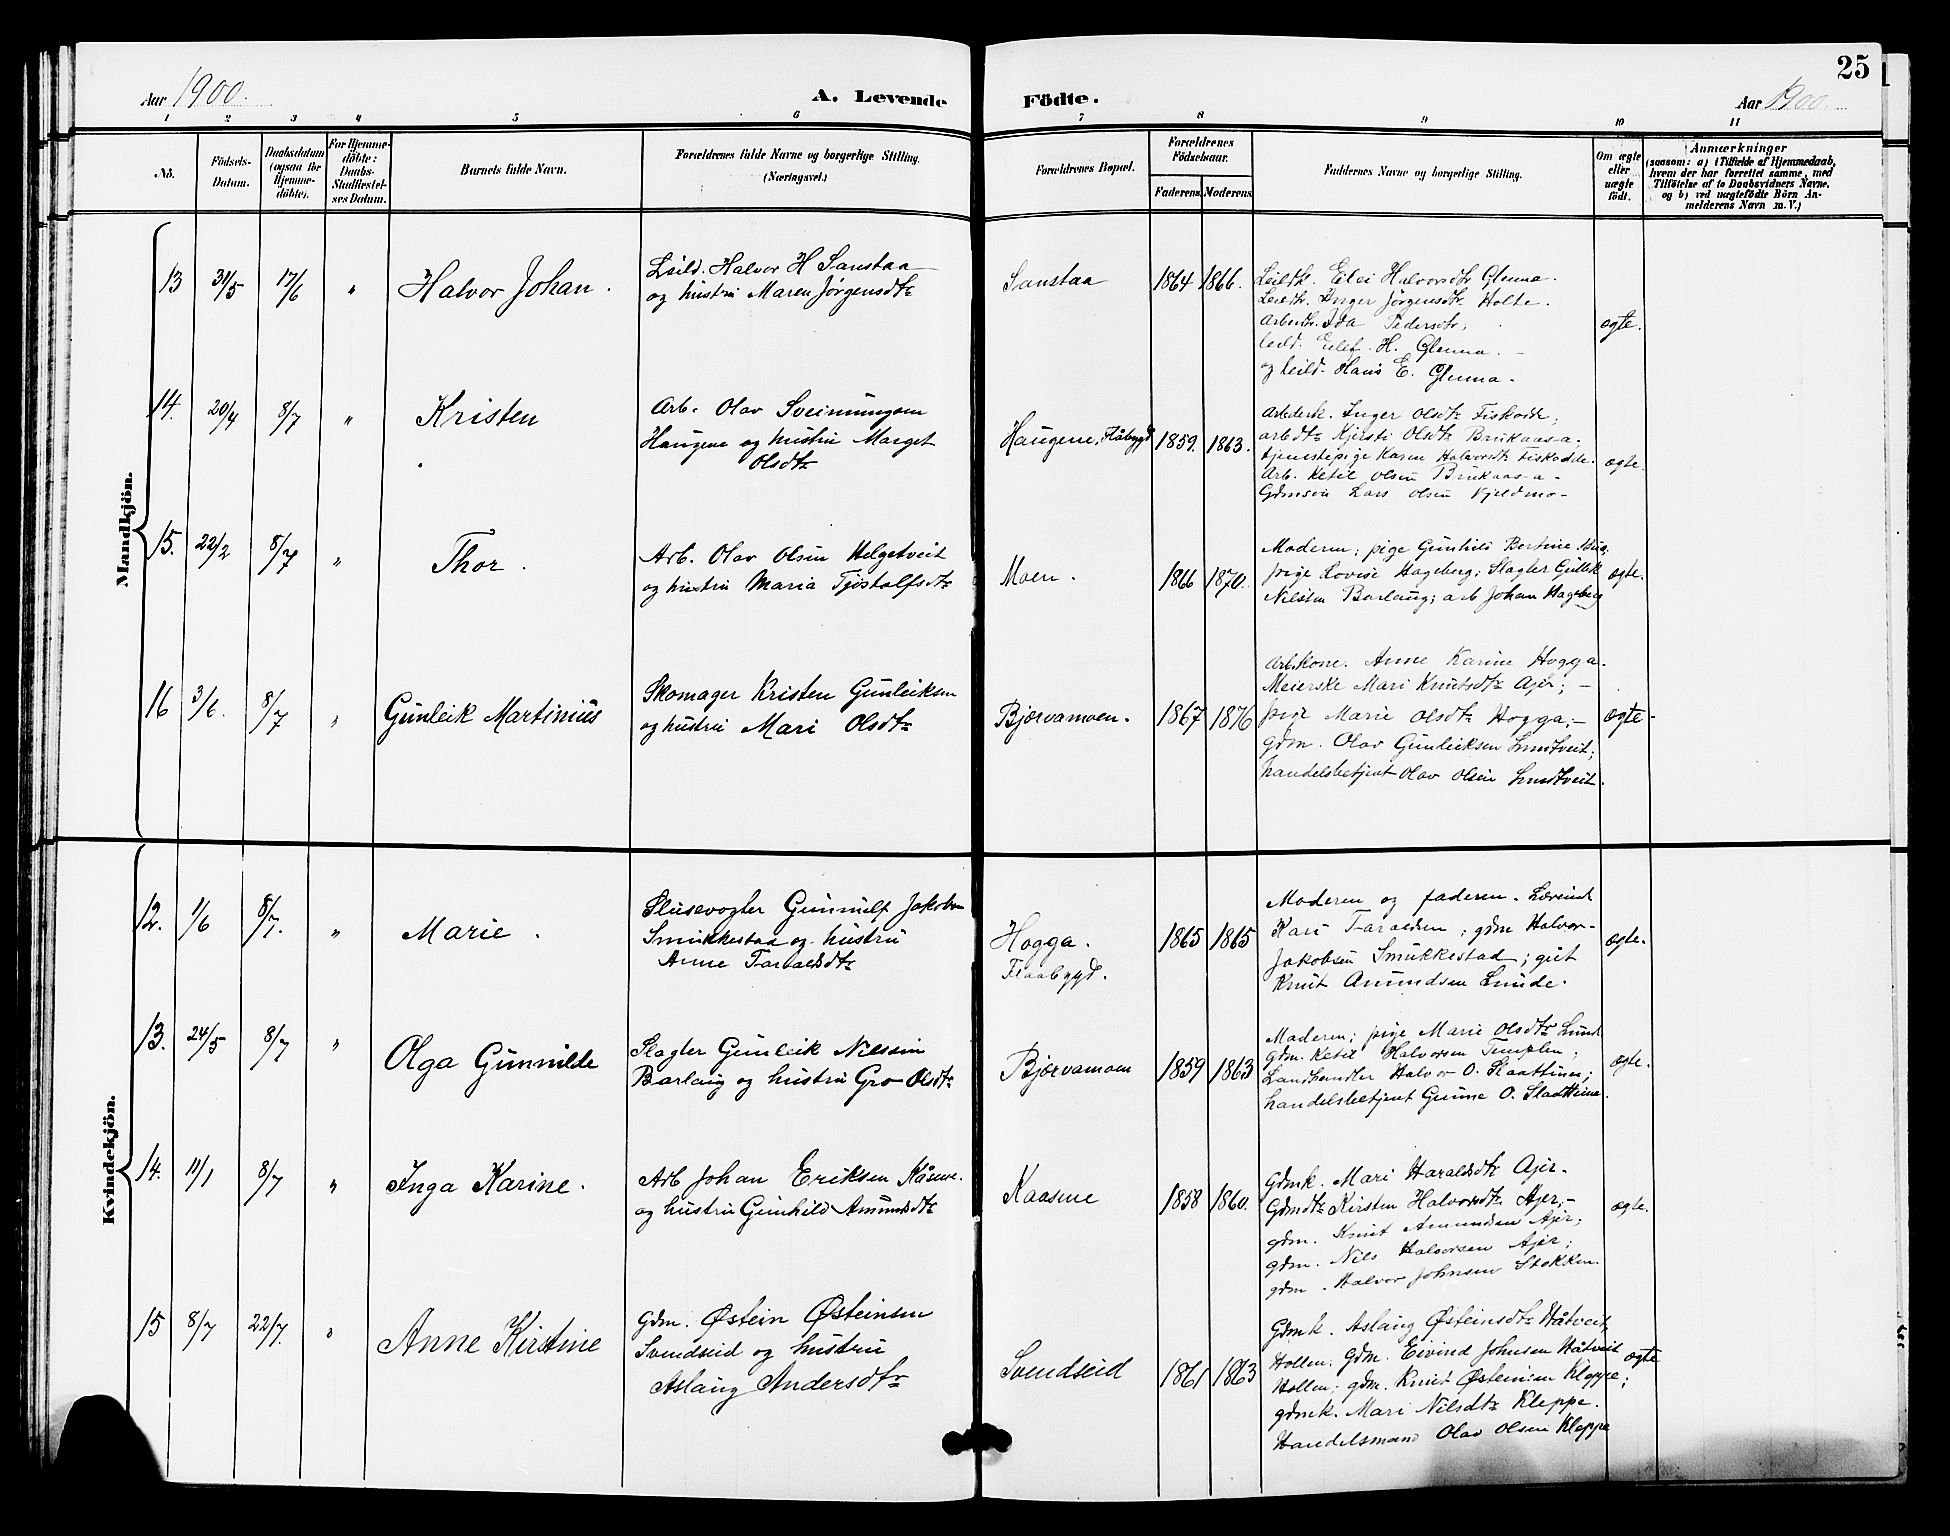 25
Aar 1900.
A. Levende Födte.
Aar 1900.
1 2 3 4 5 6 7 8 9 10 11
No.
Födsels-
Datum.
Daabsdatum
(ogsaa for
Hjemme-
döbte).
For Hjemme-
döbte:
Daabs-
Stadfæstel-
ses Datum.
Barnets fulde Navn.
Forældrenes fulde Navne og borgerlige Stilling.
(Næringsvei.)
Forældrenes Bopæl.
Forældrenes
Födselsaar.
Faderens. Moderens.
Faddernes Navne og borgerlige Stilling.
Om ægte
eller
uægte
födt.
Anmærkninger
(saasom: a) i Tilfælde af Hjemmedaab,
hvem der har forrettet samme, med
Tilföielse af to Daabsvidners Navne,
og b) ved uægtefödte Börn An-
melderens Navn m. V.)
Mandkjön.
13 31/5 17/6 " Halvor Johan.
Leild. Halvor H Sanstaa
og hustru Maren Jörgensdtr
Sanstaa 1864 1866.
Leildk. Eilei Halvorsdtr Glenna.
Leildk. Inger Jörgensdtr Holte.
Arbeidk. Ida Pedersdtr,
leild. Eilef H. Glenna.
og leild. Hans E. Glenna.
ægte.
14. 20/4 8/7 " Kristen
Arb. Olav Sveinungsen
Haugene og hustru Marget
Olsdtr
Haugene, Flåbygd 1859. 1863.
Arbeidk. Inger Olsdtr Fiskodde,
arbdtr Kjersti Olsdtr Brukaas-a,
tjenestepige Karen Halvorsdtr Fiskodde.
Arb. Ketil Olsen Brukaas-a
Gdmsön Lars Olsen Kjeldmo
ægte.
15. 22/2 8/7 " Thor.
Arb. Olav Olsen Helgetveit
og hustru Maria Tjostolfsdtr
Moen. 1866 1870.
Moderen; pige Gunhild Bertine
pige Lovise Hageberg; Slagter Gullek
Nilsen Barlaug; arb Johan Hageberg
ægte.
16 3/6. 8/7 " Gunleik Martinius
Skomager Kristen Gunleiksen
og hustru Mari Olsdtr
Bjervamoen. 1867 1876
Arb.kone. Anne Karine Hogga.
Meierske Mari Knutsdtr Ajer;
pige Marie Olsdtr Hogga;
gdm. Olav Gunleiksen Lundtveit;
handelsbetjent Olav Olsen Lundtveit.
ægte.
Kvindekjön.
12. 1/6 8/7. " Marie.
Slusevogter Gunnulf Jakobsen
Smukkestaa og hustru
Anne Taraldsdtr
Hogga.
Flaabygd.
1865 1865
Moderen og faderen.
Kari Taraldsen; gdm Halvor
Jakobsen Smukkestad; gut
Knut Amundsen Lunde.
ægte.
13. 24/5 8/7 " Olga Gunnilde
Slagter Gunleik Nilssen
Barlaug og hustru Gro Olsdtr
Bjervamoen 1859 1863
Moderen; pige Marie Olsdtr Lund
gdm. Ketil Halvorsen Templen;
Landhandler Halvor O. Slaattene;
handelsbetjent Gunne O. Slaattene.
ægte.
14. 11/1 8/7 " Inga Karine.
Arb Johan Eriksen Kåsene.
og hustru Gunhild Amundsdtr
Kaasene 1858 1860.
Gdmk. Mari Haraldsdtr Ajer.
Gdmdtr Kirsten Halvorsdtr Ajer;
gdm. Knut Amundsen Ajer;
gdm. Nils Halvorsen Ajer;
gdm. Halvor Johnsen Stokken.
ægte.
15 8/7 22/7. " Anne Kirstine
Gdm. Østein Østeinsen
Svendseid og hustru
Aslaug Andersdtr
Svendseid 1861 1863
Gdmk. Aslaug Østeinsdtr Håtveit,
Hollen; Gdm. Eivind Johnsen Håtveit
Hollen; gdm. Knut Østeinsen Kleppe;
gdmk. Mari Nilsdtr Kleppe.
Handelsmand Olav Olsen Kleppe
ægte